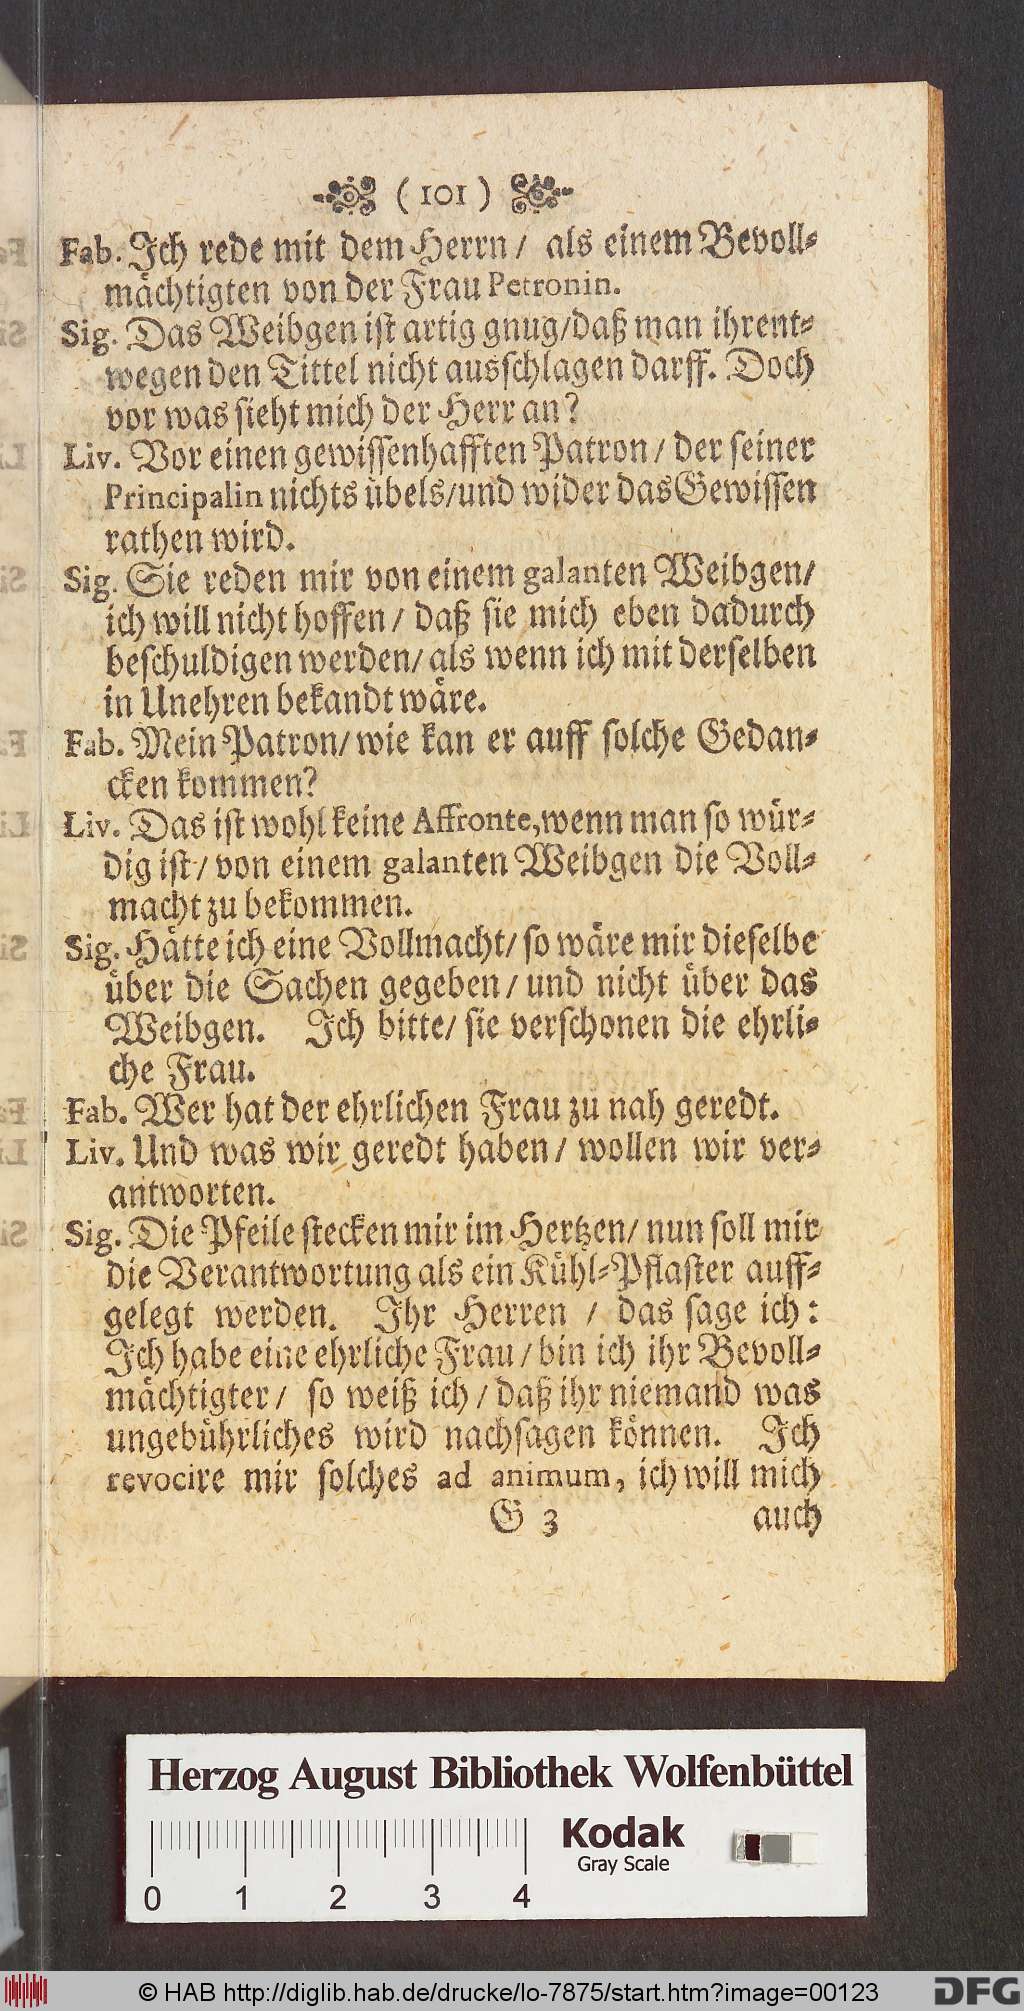 ( 101 )
Fab. Ich rede mit dem Herrn / als einem Bevoll-
mächtigten von der Frau Petronin.
Sig. Das Weibgen ist artig gnug/daß man ihrent-
wegen den Tittel nicht ausschlagen darff. Doch
vor was sieht mich der Herr an?
Liv. Vor einen gewissenhafften Patron / der seiner
Principalin nichts übels/und wider das Gewissen
rathen wird.
Sig. Sie reden mir von einem galanten Weibgen/
ich will nicht hoffen / daß sie mich eben dadurch
beschuldigen werden/ als wenn ich mit derselben
in Unehren bekandt wäre.
Fab. Mein Patron/ wie kan er auff solche Gedan-
cken kommen?
Liv. Das ist wohl keine Affronte,wenn man so wür-
dig ist / von einem galanten Weibgen die Voll-
macht zu bekommen.
Sig. Hätte ich eine Vollmacht/ so wäre mir dieselbe
über die Sachen gegeben / und nicht über das
Weibgen. Ich bitte/ sie verschonen die ehrli-
che Frau.
Fab. Wer hat der ehrlichen Frau zu nah geredt.
Liv. Und was wir geredt haben / wollen wir ver-
antworten.
Sig. Die Pfeile stecken mir im Hertzen/ nun soll mir
die Verantwortung als ein Kühl-Pflaster auff-
gelegt werden. Ihr Herren / das sage ich:
Ich habe eine ehrliche Frau / bin ich ihr Bevoll-
mächtigter / so weiß ich / daß ihr niemand was
ungebührliches wird nachsagen können. Ich
revocire mir solches ad animum, ich will mich
G 3 auch
Herzog August Bibliothek Wolfenbüttel
Kodak
Gray Scale
0 1 2 3 4
© HAB http://diglib.hab.de/drucke/lo-7875/start.htm?image=00123
DFG